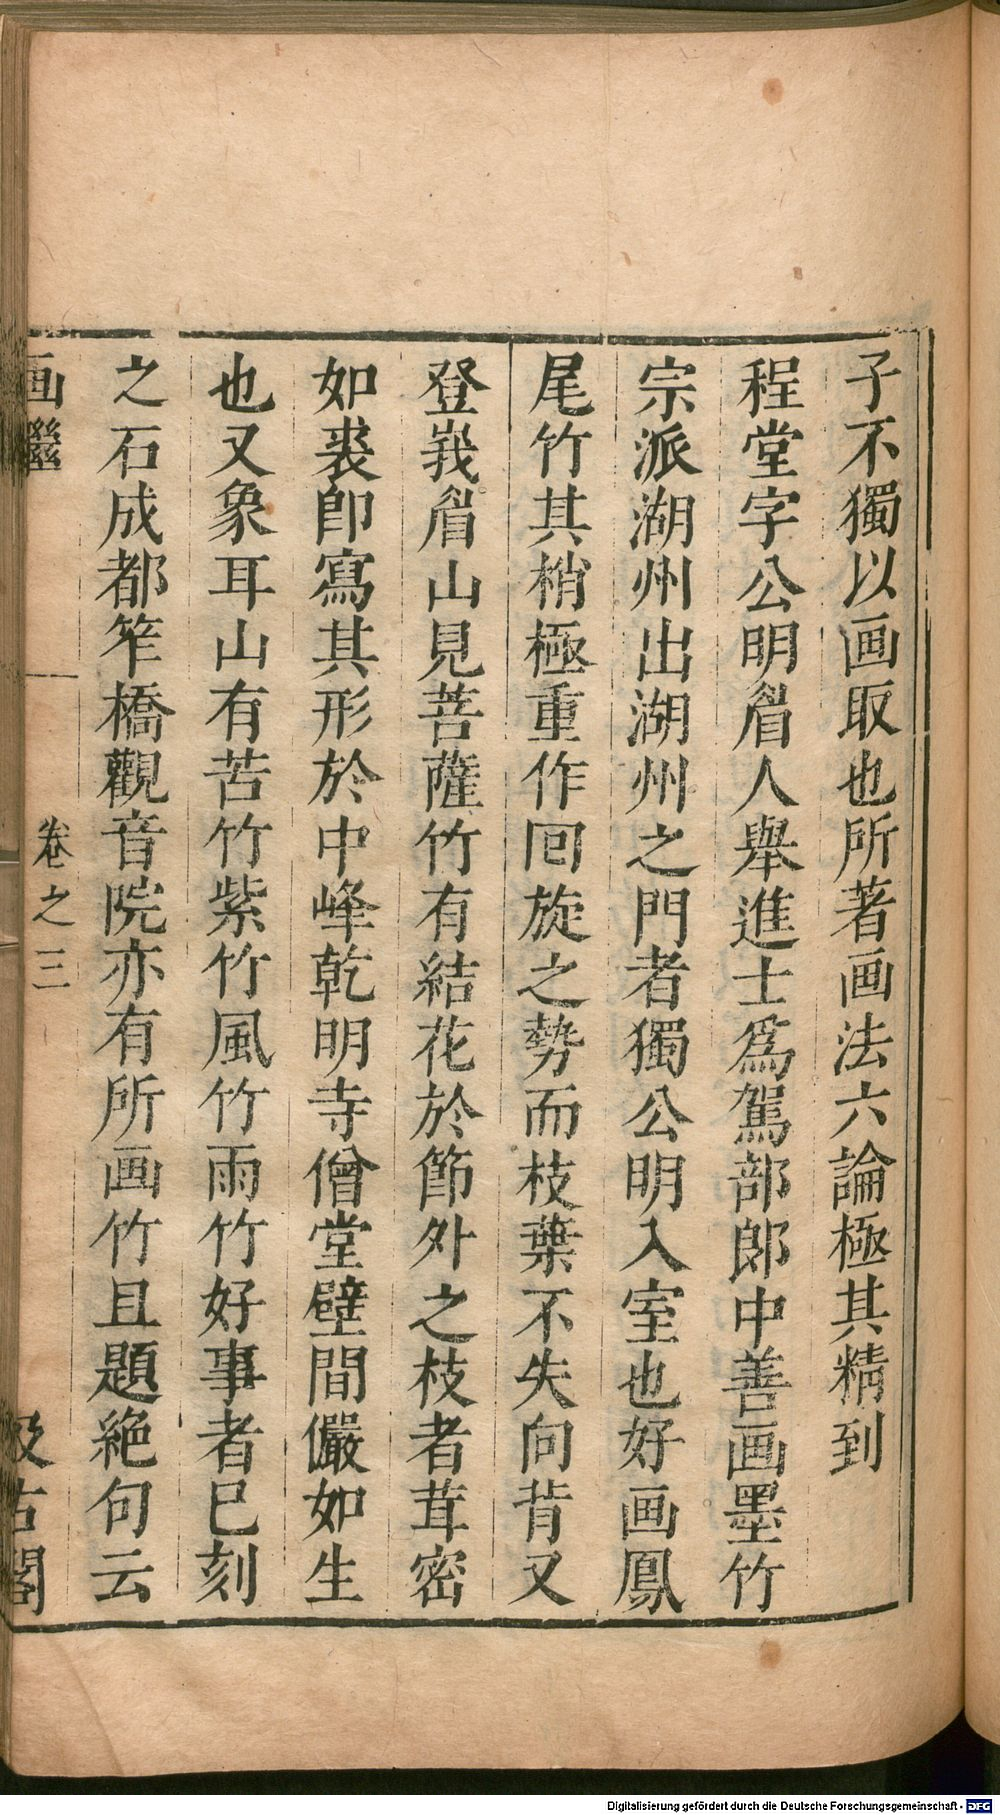 子不獨以画取也所著画法六論極其精到
程堂字公明眉人舉進士爲駕部郎中善画墨竹
宗派湖州出湖州之門者獨公明入室也好画鳳
尾竹其梢極重作回旋之勢而枝葉不失向背又
登峩眉山見菩薩竹有結花於節外之枝者茸密
如裘即寫其形於中峰乾明寺僧堂壁間儼如生
也又象耳山有苦竹紫竹風竹雨竹好事者巳刻
之石成都笮橋觀音院亦有所画竹且題絶句云
画繼
卷之三
汲古閣
Digitalisierung gefördert durch die Deutsche Forschungsgemeinschaft - DFG